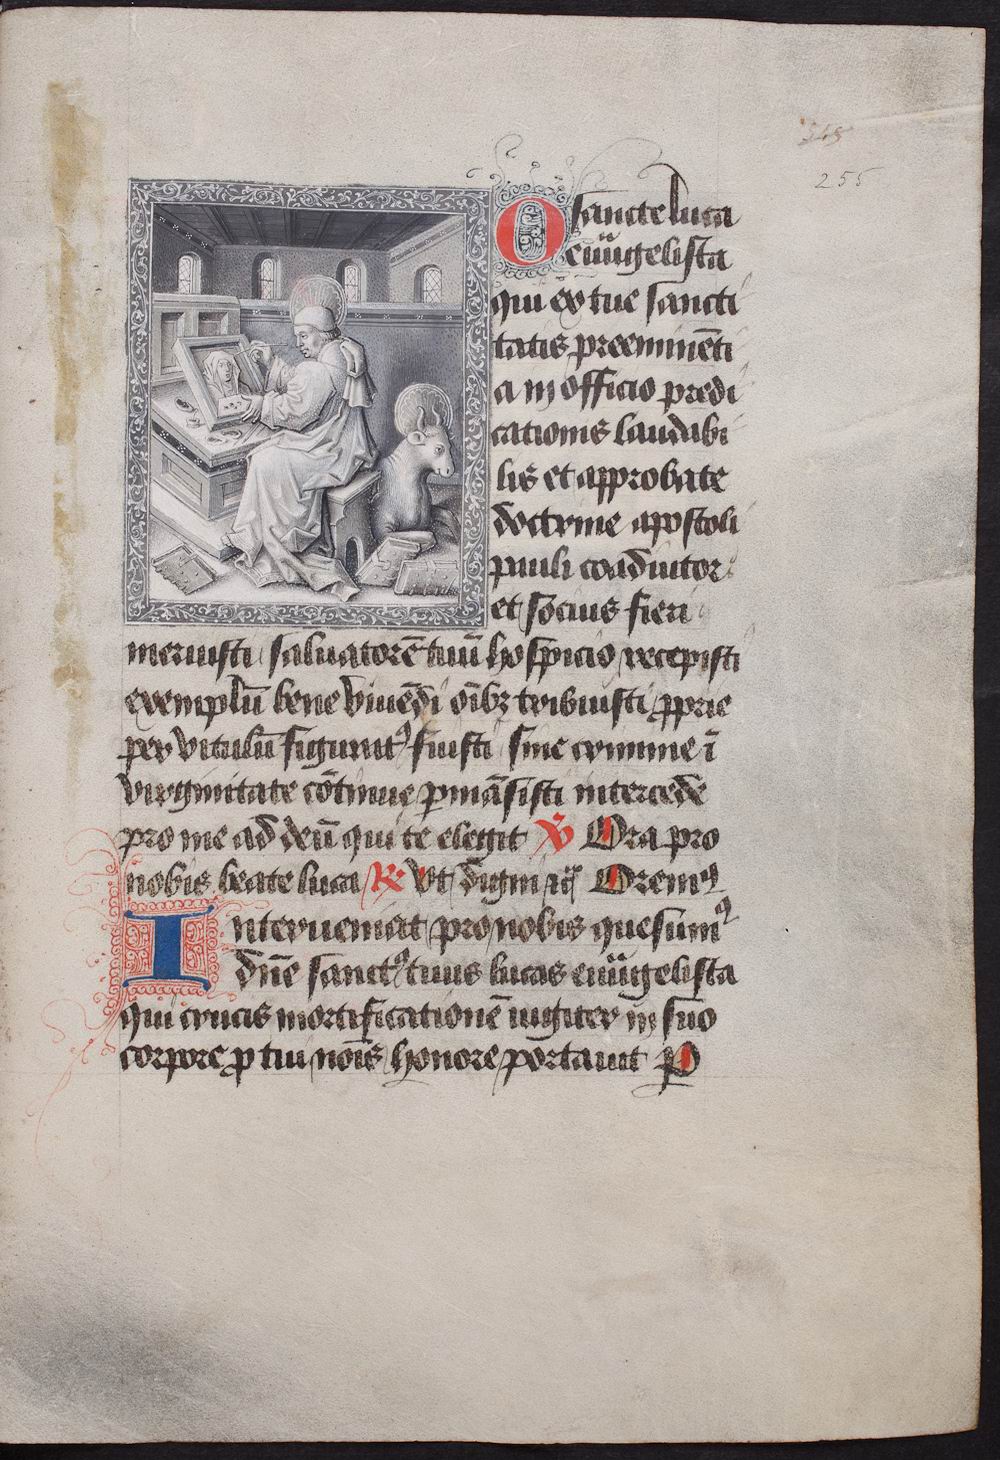 345
255
O sancte luca
ewāgelista
qui ex tue sancti
tatis preeminēti
a in officio predi
cationis laudabi
lis et approbate
doctrine apostoli
pauli coadiutor
et socius fieri
meruisti saluatorē tuū hospicio recepisti
exemplū bene viuēdi oībꝫ tribuisti ꝓprie
per vitulū figuratꝰ fuisti sine crimine ī
virginitate cōtinue ꝑmāsisti intercede
pro me ad deū qui te elegit ℣ Ora pro
nobis beate luca ℟ Vt digni Oremꝰ
Interueniat pro nobis quesumꝰ
dn̄e sanctꝰ tuus lucas ewāgelista
qui crucis mortificationē iugiter in suo
corpore ꝓ tui noīs honore portauit P